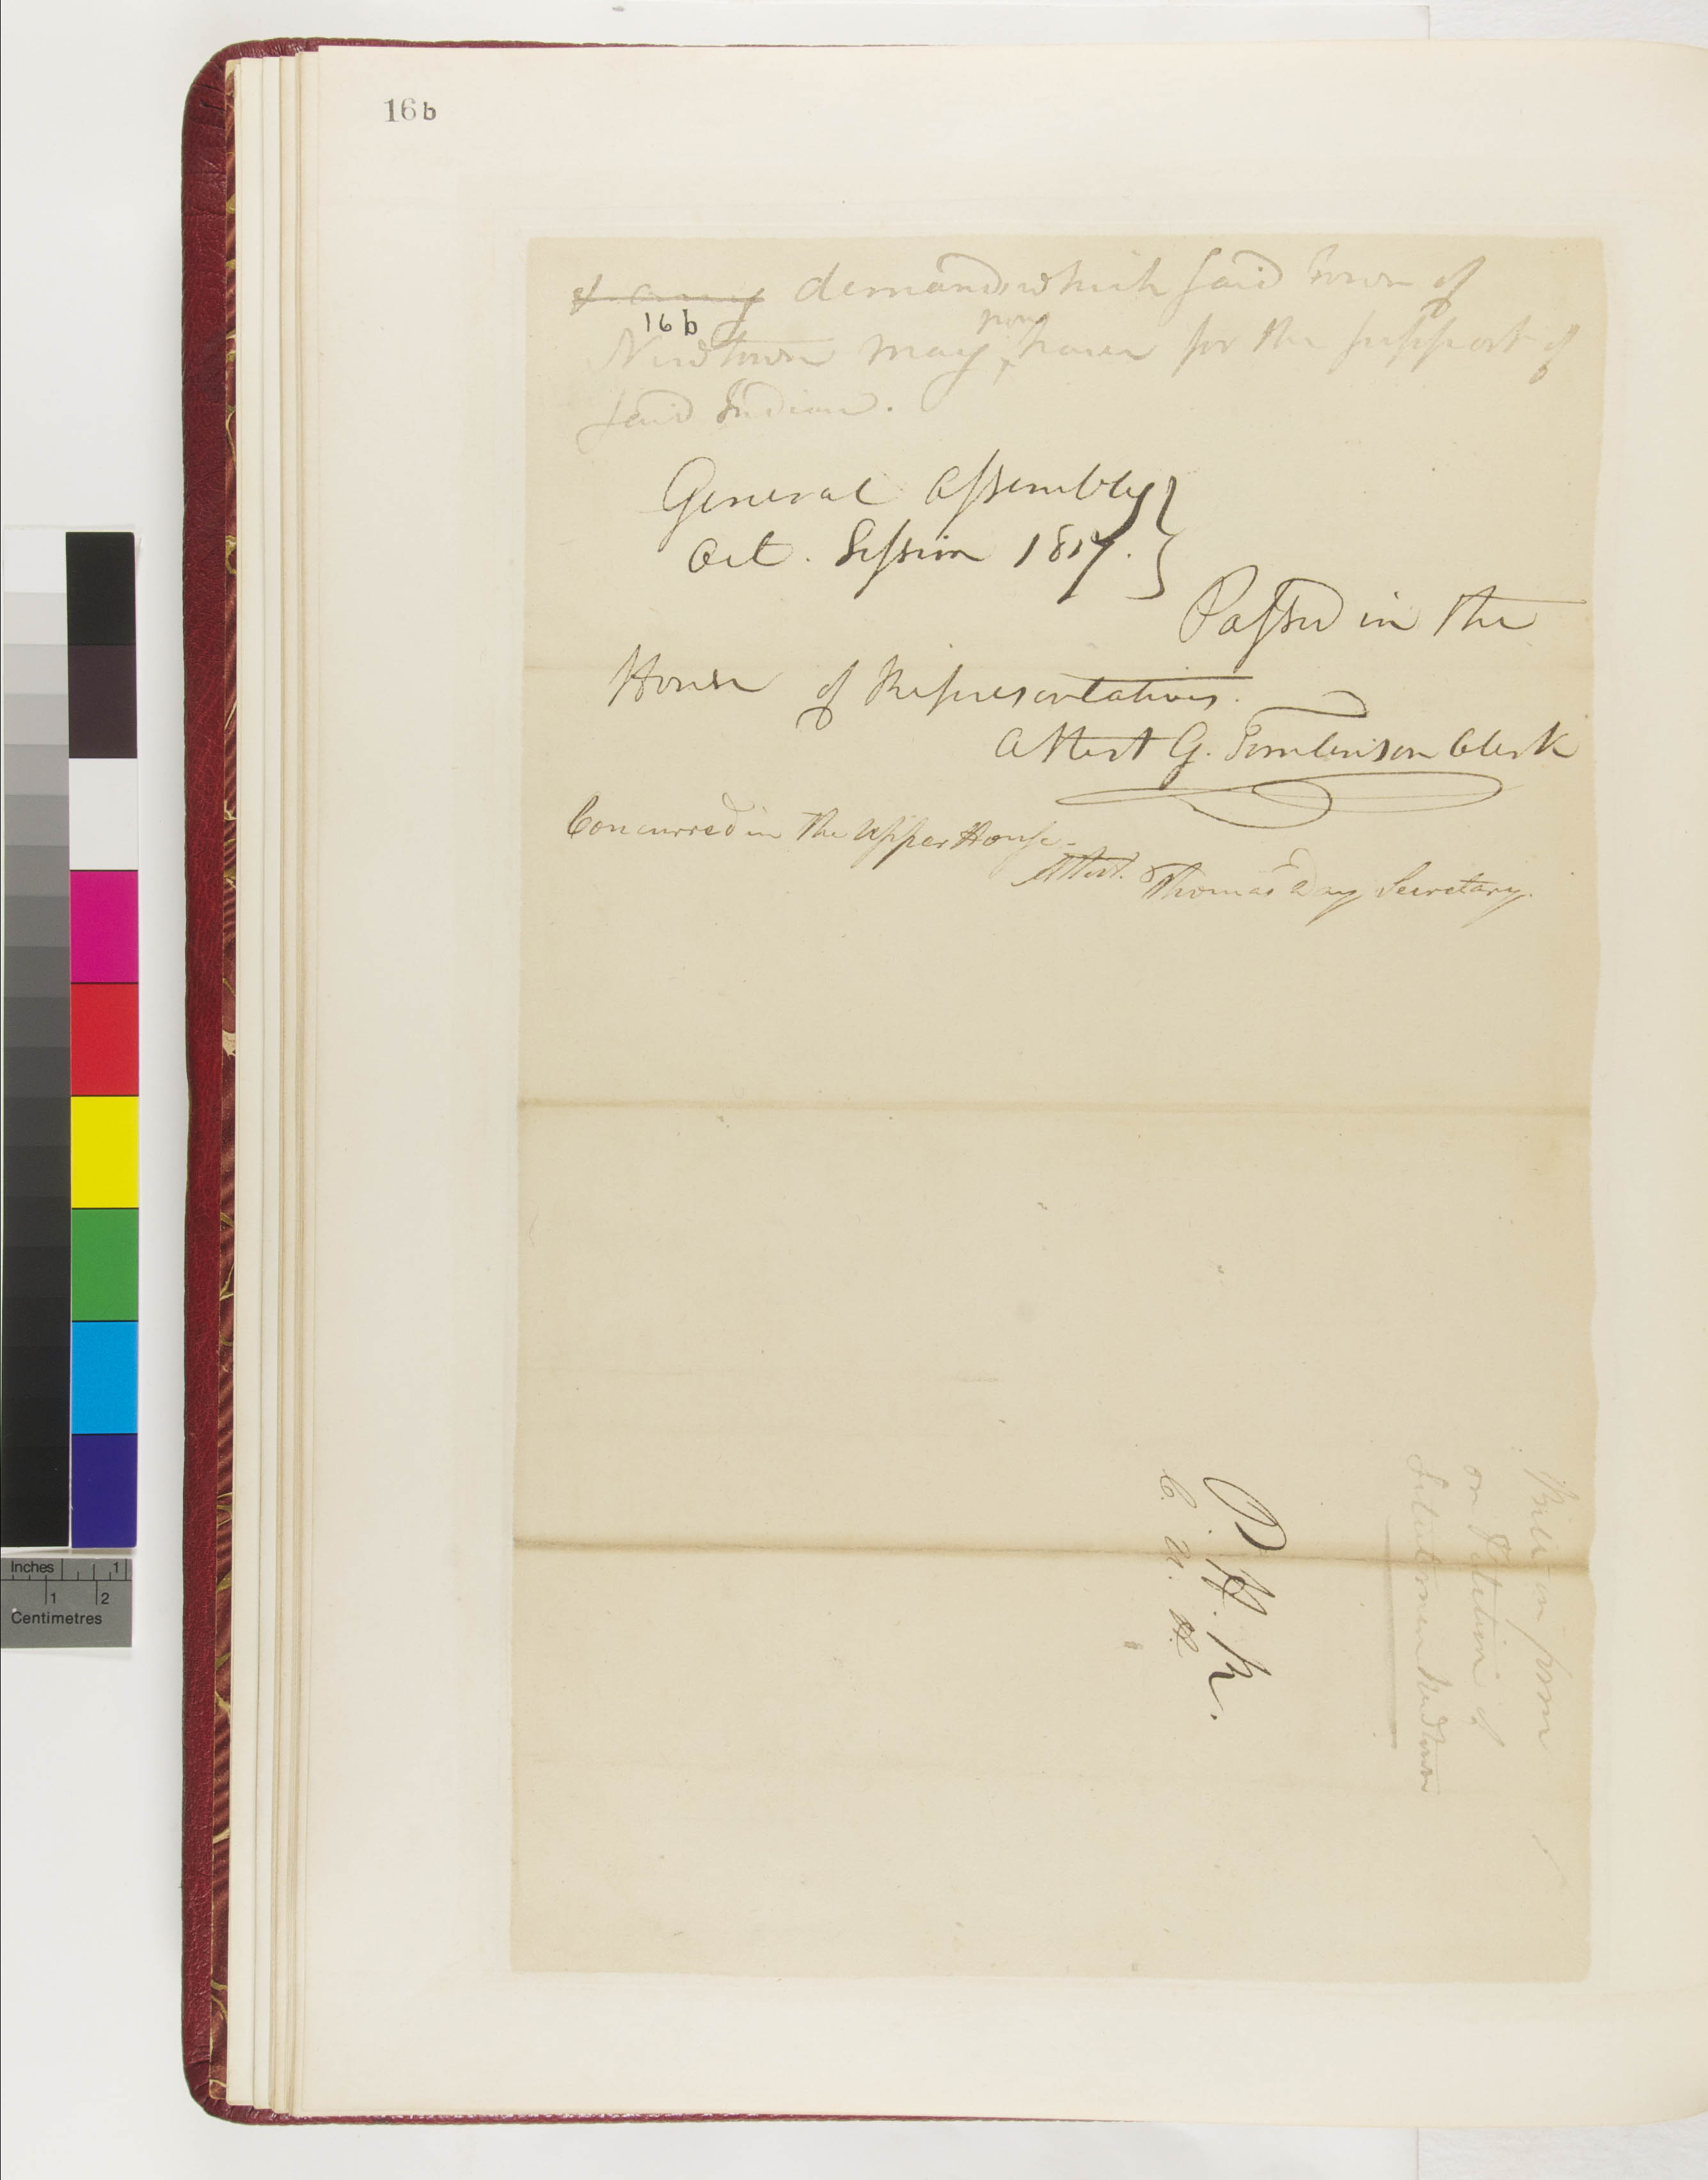 16 b
& any demands which said Town of
16 b
now
Newtown may have for the support of
said Indian.
General Assembly }
Oct. Session 1817. }
Passed in the
House of Representatives.
Attest G. Tomlinson Clerk
Concurred in the Upper House.
Attest. Thomas Day Secretary.
Bill in form
on Petition of
Selectmen Newtown
P. H. R.
C. U. H.
Inches 1
1 2
Centimetres